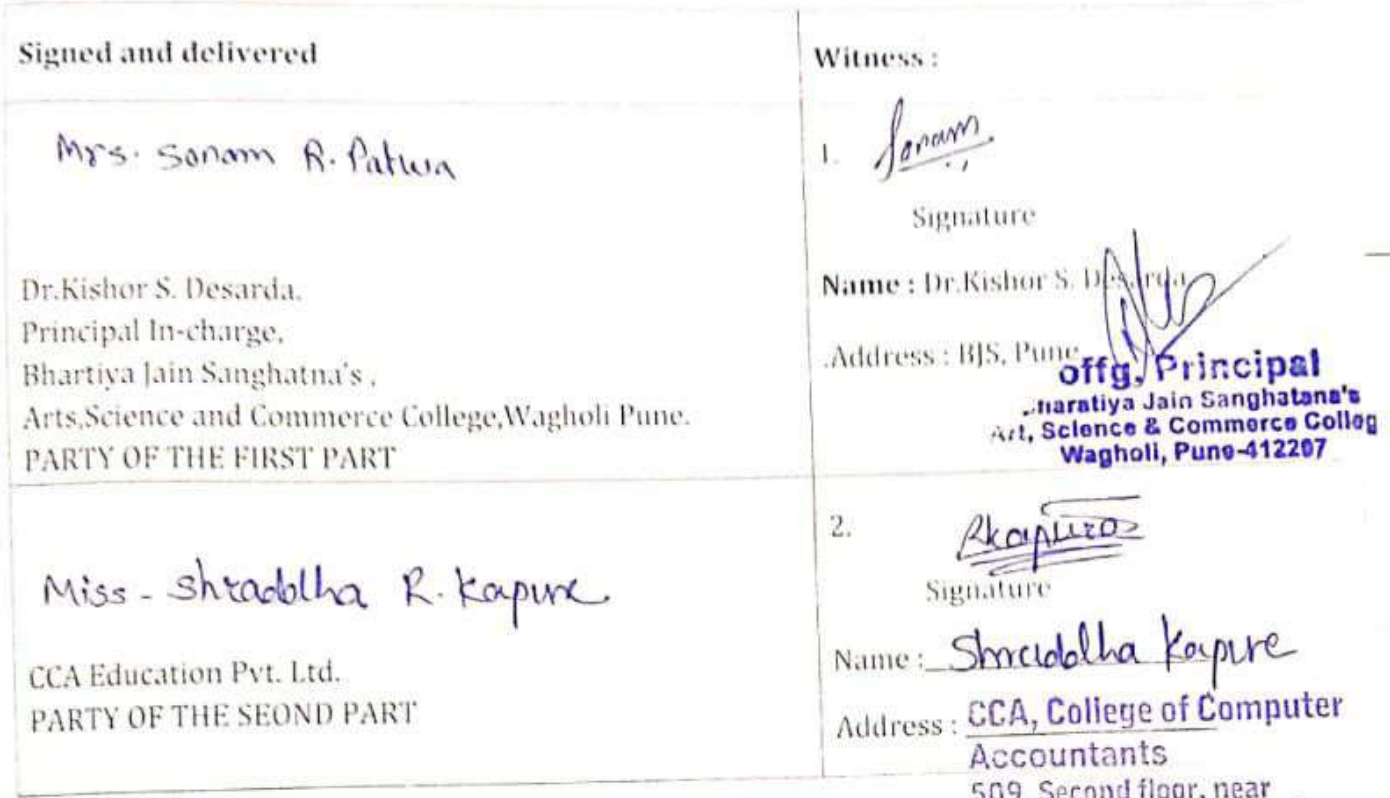 Signed and delivered
Mrs. Sonam R. Patwa
Dr.Kishor S. Desarda,
Principal In-charge,
Bhartiya Jain Sanghatna's ,
Arts,Science and Commerce College,Wagholi Pune.
PARTY OF THE FIRST PART
Witness :
1. Sonam
Signature
Name : Dr.Kishor S. Desarda
Address : BJS, Pune
offg, Principal
haratiya Jain Sanghatana's
Art, Science & Commerce Colleg
Wagholi, Pune-412207
Miss - Shraddha R. Kapure
CCA Education Pvt. Ltd.
PARTY OF THE SEOND PART
2.
Signature
Name : Shraddha Kapure
Address : CCA, College of Computer
Accountants
509, Second floor, near